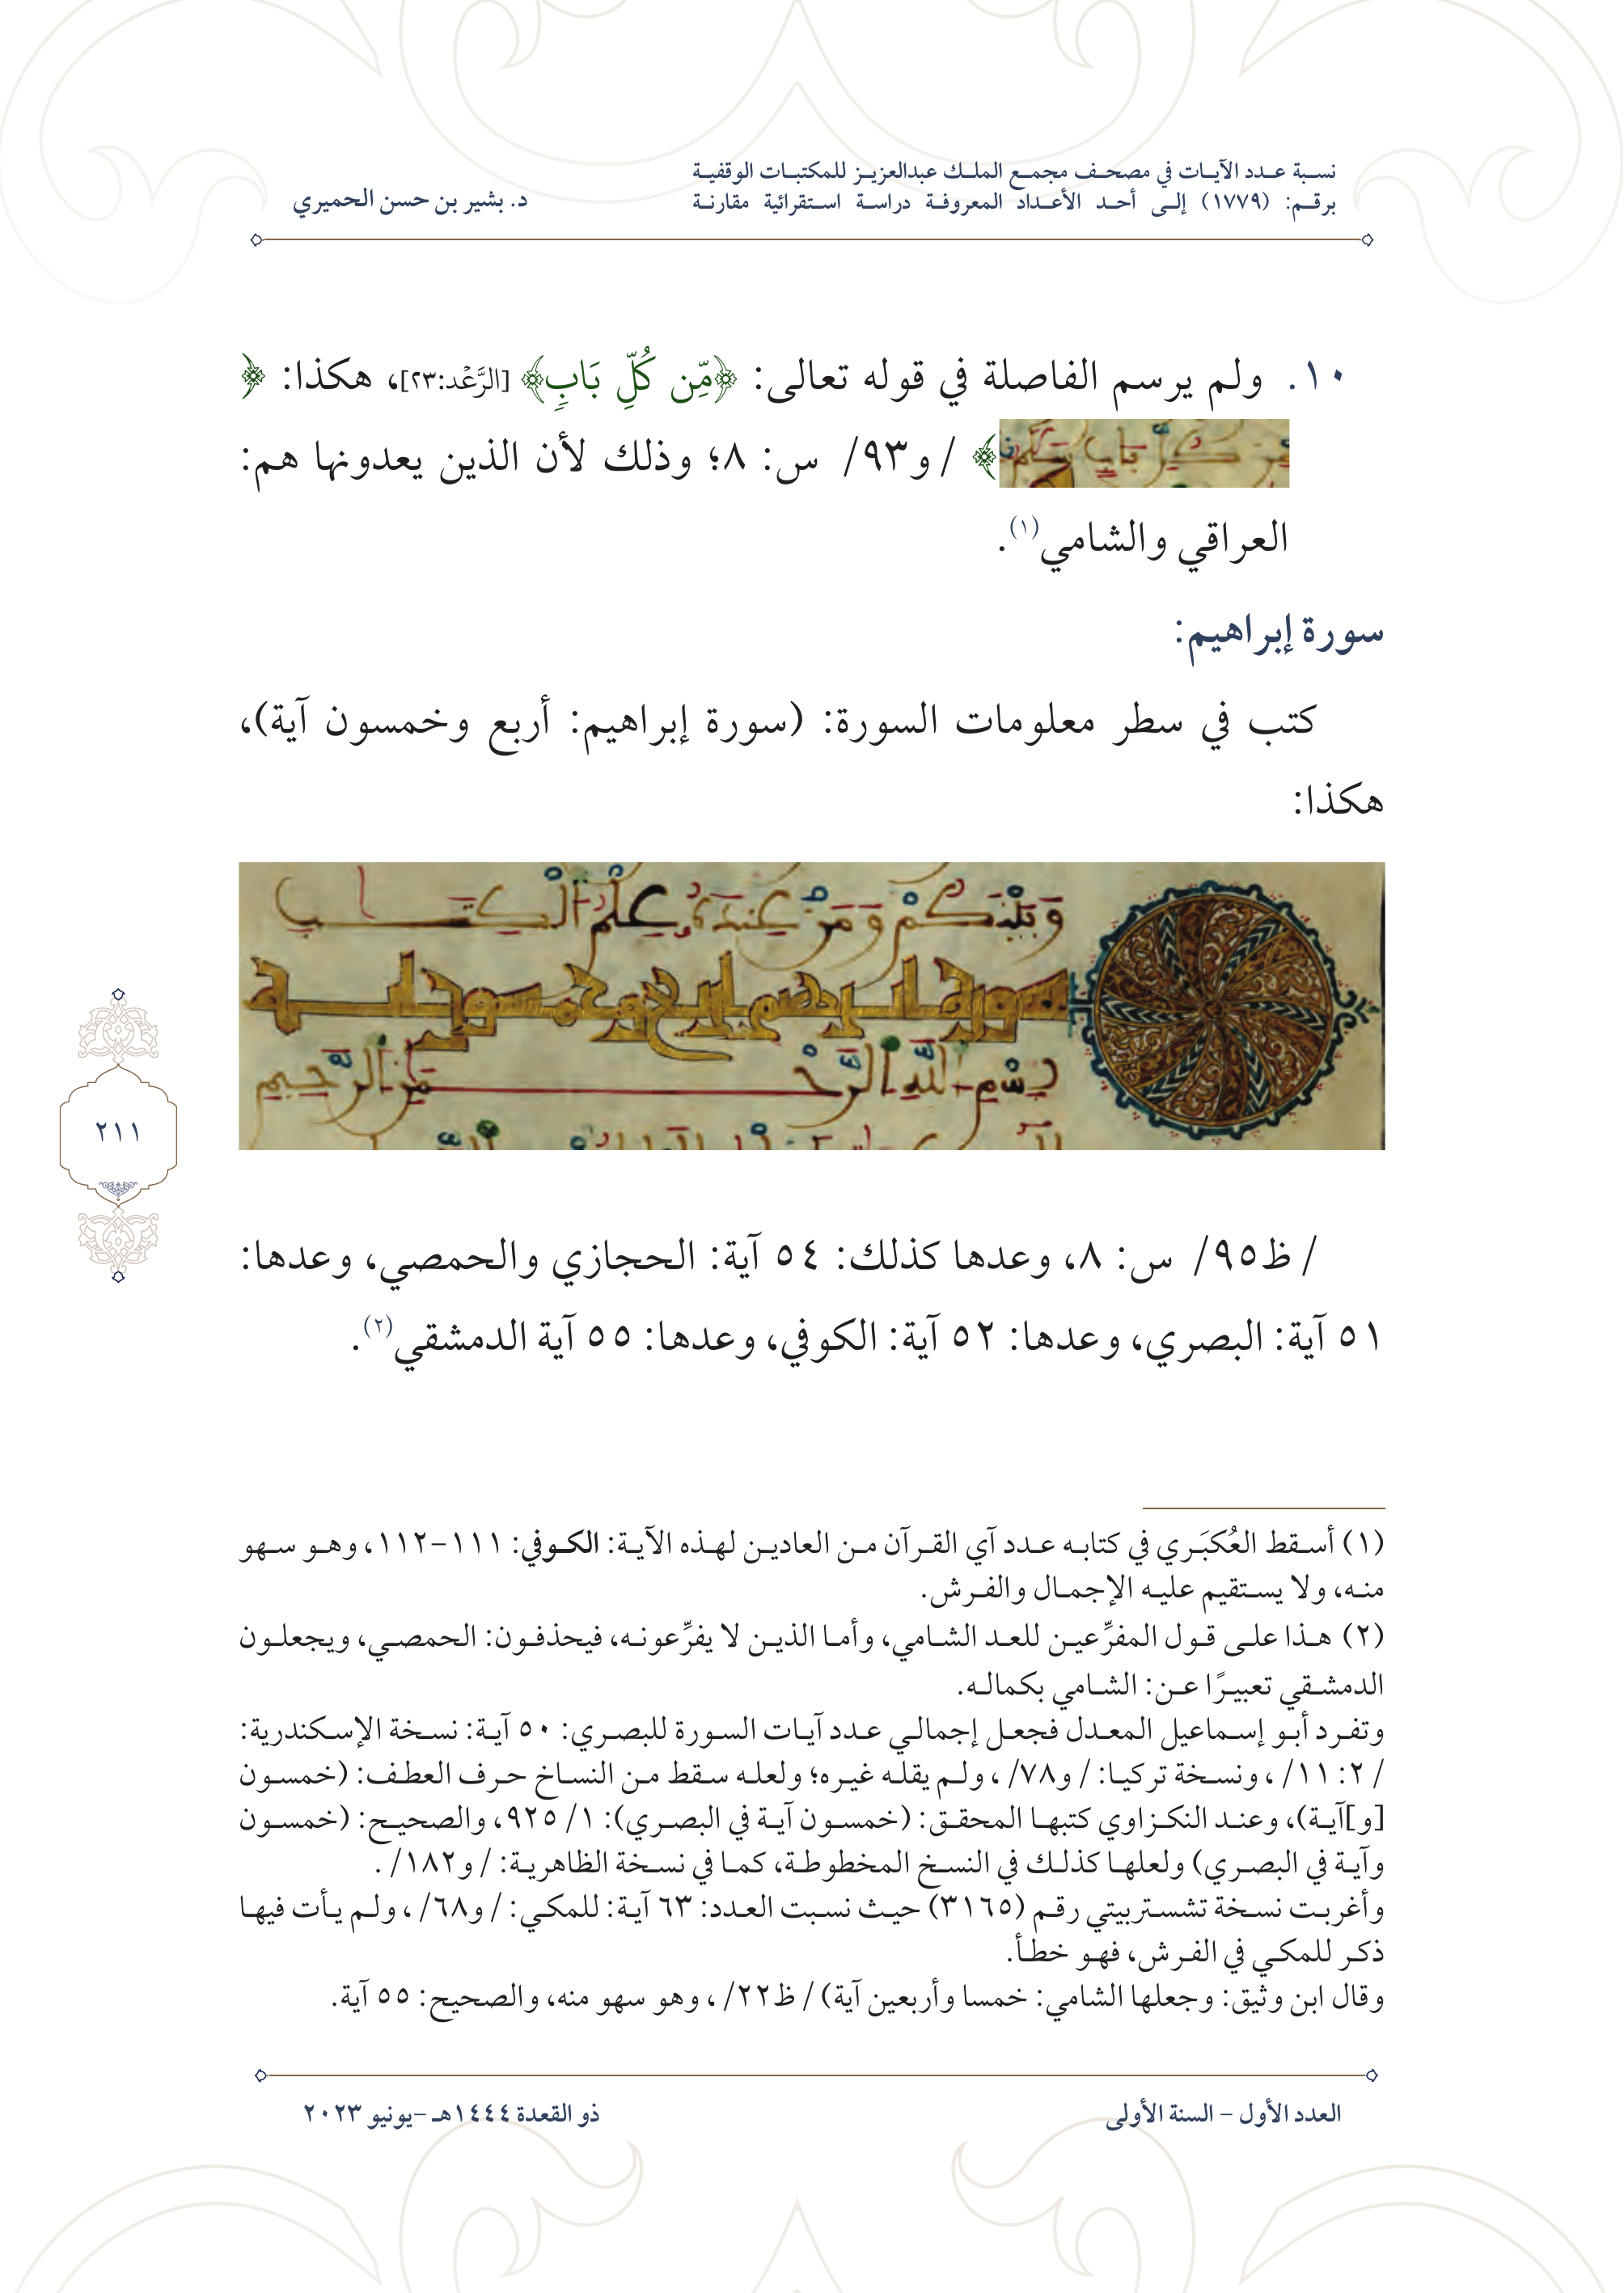 نسبة عدد الآيات في مصحف مجمع الملك عبدالعزيز للمكتبات الوقفية
برقم: (١٧٧٩) إلى أحد الأعداد المعروفة دراسة استقرائية مقارنة
د. بشير بن حسن الحميري
١٠. ولم يرسم الفاصلة في قوله تعالى: ﴿مِّن كُلِّ بَابٖ﴾ [الرَّعۡد:٢٣]، هكذا: ﴿
من كل باب سلم﴾ /و٩٣/ س: ٨؛ وذلك لأن الذين يعدونها هم:
العراقي والشامي(١).
سورة إبراهيم:
كتب في سطر معلومات السورة: (سورة إبراهيم: أربع وخمسون آية)،
هكذا:
وَبَيْنَكُمْ وَمَنْ عِندَهُ عِلْمُ الْكِتَابِ
سورة إبرهيم أربع وخمسون آية
بِسْمِ اللَّهِ الرَّحْمَنِ الرَّحِيمِ
/ظ٩٥/ س: ٨، وعدها كذلك: ٥٤ آية: الحجازي والحمصي، وعدها:
٥١ آية: البصري، وعدها: ٥٢ آية: الكوفي، وعدها: ٥٥ آية الدمشقي(٢).
٢١١
(١) أسقط العُكبَري في كتابه عدد آي القرآن من العادين لهذه الآية: الكوفي: ١١١-١١٢، وهو سهو
منه، ولا يستقيم عليه الإجمال والفرش.
(٢) هذا على قول المفرِّعين للعد الشامي، وأما الذين لا يفرِّعونه، فيحذفون: الحمصي، ويجعلون
الدمشقي تعبيرًا عن: الشامي بكماله.
وتفرد أبو إسماعيل المعدل فجعل إجمالي عدد آيات السورة للبصري: ٥٠ آية: نسخة الإسكندرية:
/٢: ١١/، ونسخة تركيا: /و٧٨/، ولم يقله غيره؛ ولعله سقط من النساخ حرف العطف: (خمسون
[و]آية)، وعند النكزاوي كتبها المحقق: (خمسون آية في البصري): ١/ ٩٢٥، والصحيح: (خمسون
وآية في البصري) ولعلها كذلك في النسخ المخطوطة، كما في نسخة الظاهرية: /و١٨٢/.
وأغربت نسخة تشستربيتي رقم (٣١٦٥) حيث نسبت العدد: ٦٣ آية: للمكي: /و٦٨/، ولم يأت فيها
ذكر للمكي في الفرش، فهو خطأ.
وقال ابن وثيق: وجعلها الشامي: خمسا وأربعين آية) /ظ٢٢/، وهو سهو منه، والصحيح: ٥٥ آية.
العدد الأول – السنة الأولى
ذو القعدة ١٤٤٤هـ -يونيو ٢٠٢٣